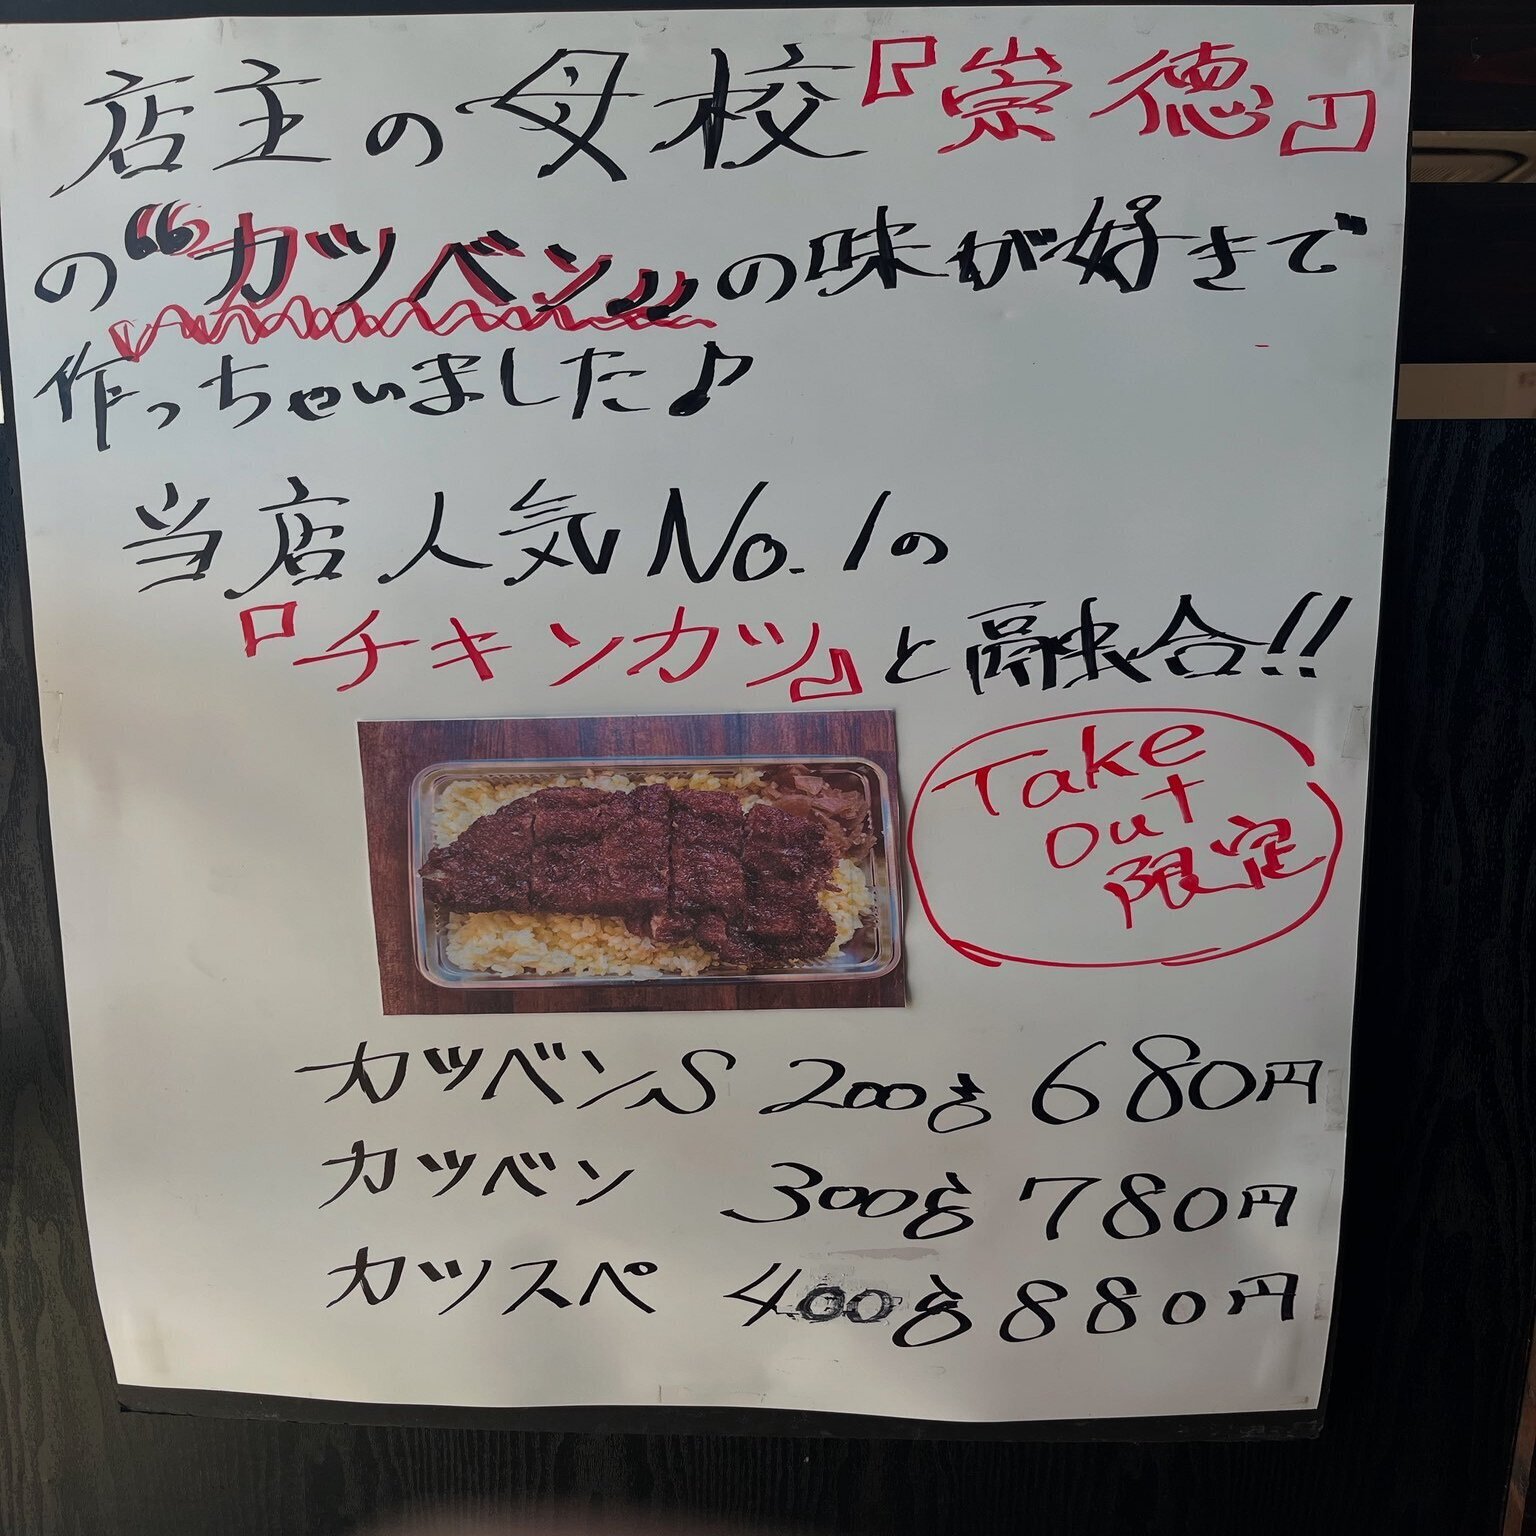 店主の母校『崇徳』
の“カツベン”の味が好きで
作っちゃいました♪
当店人気No.1の
『チキンカツ』と融合!!
Take
out
限定
カツベンS 200g 680円
カツベン 300g 780円
カツスペ 400g 880円